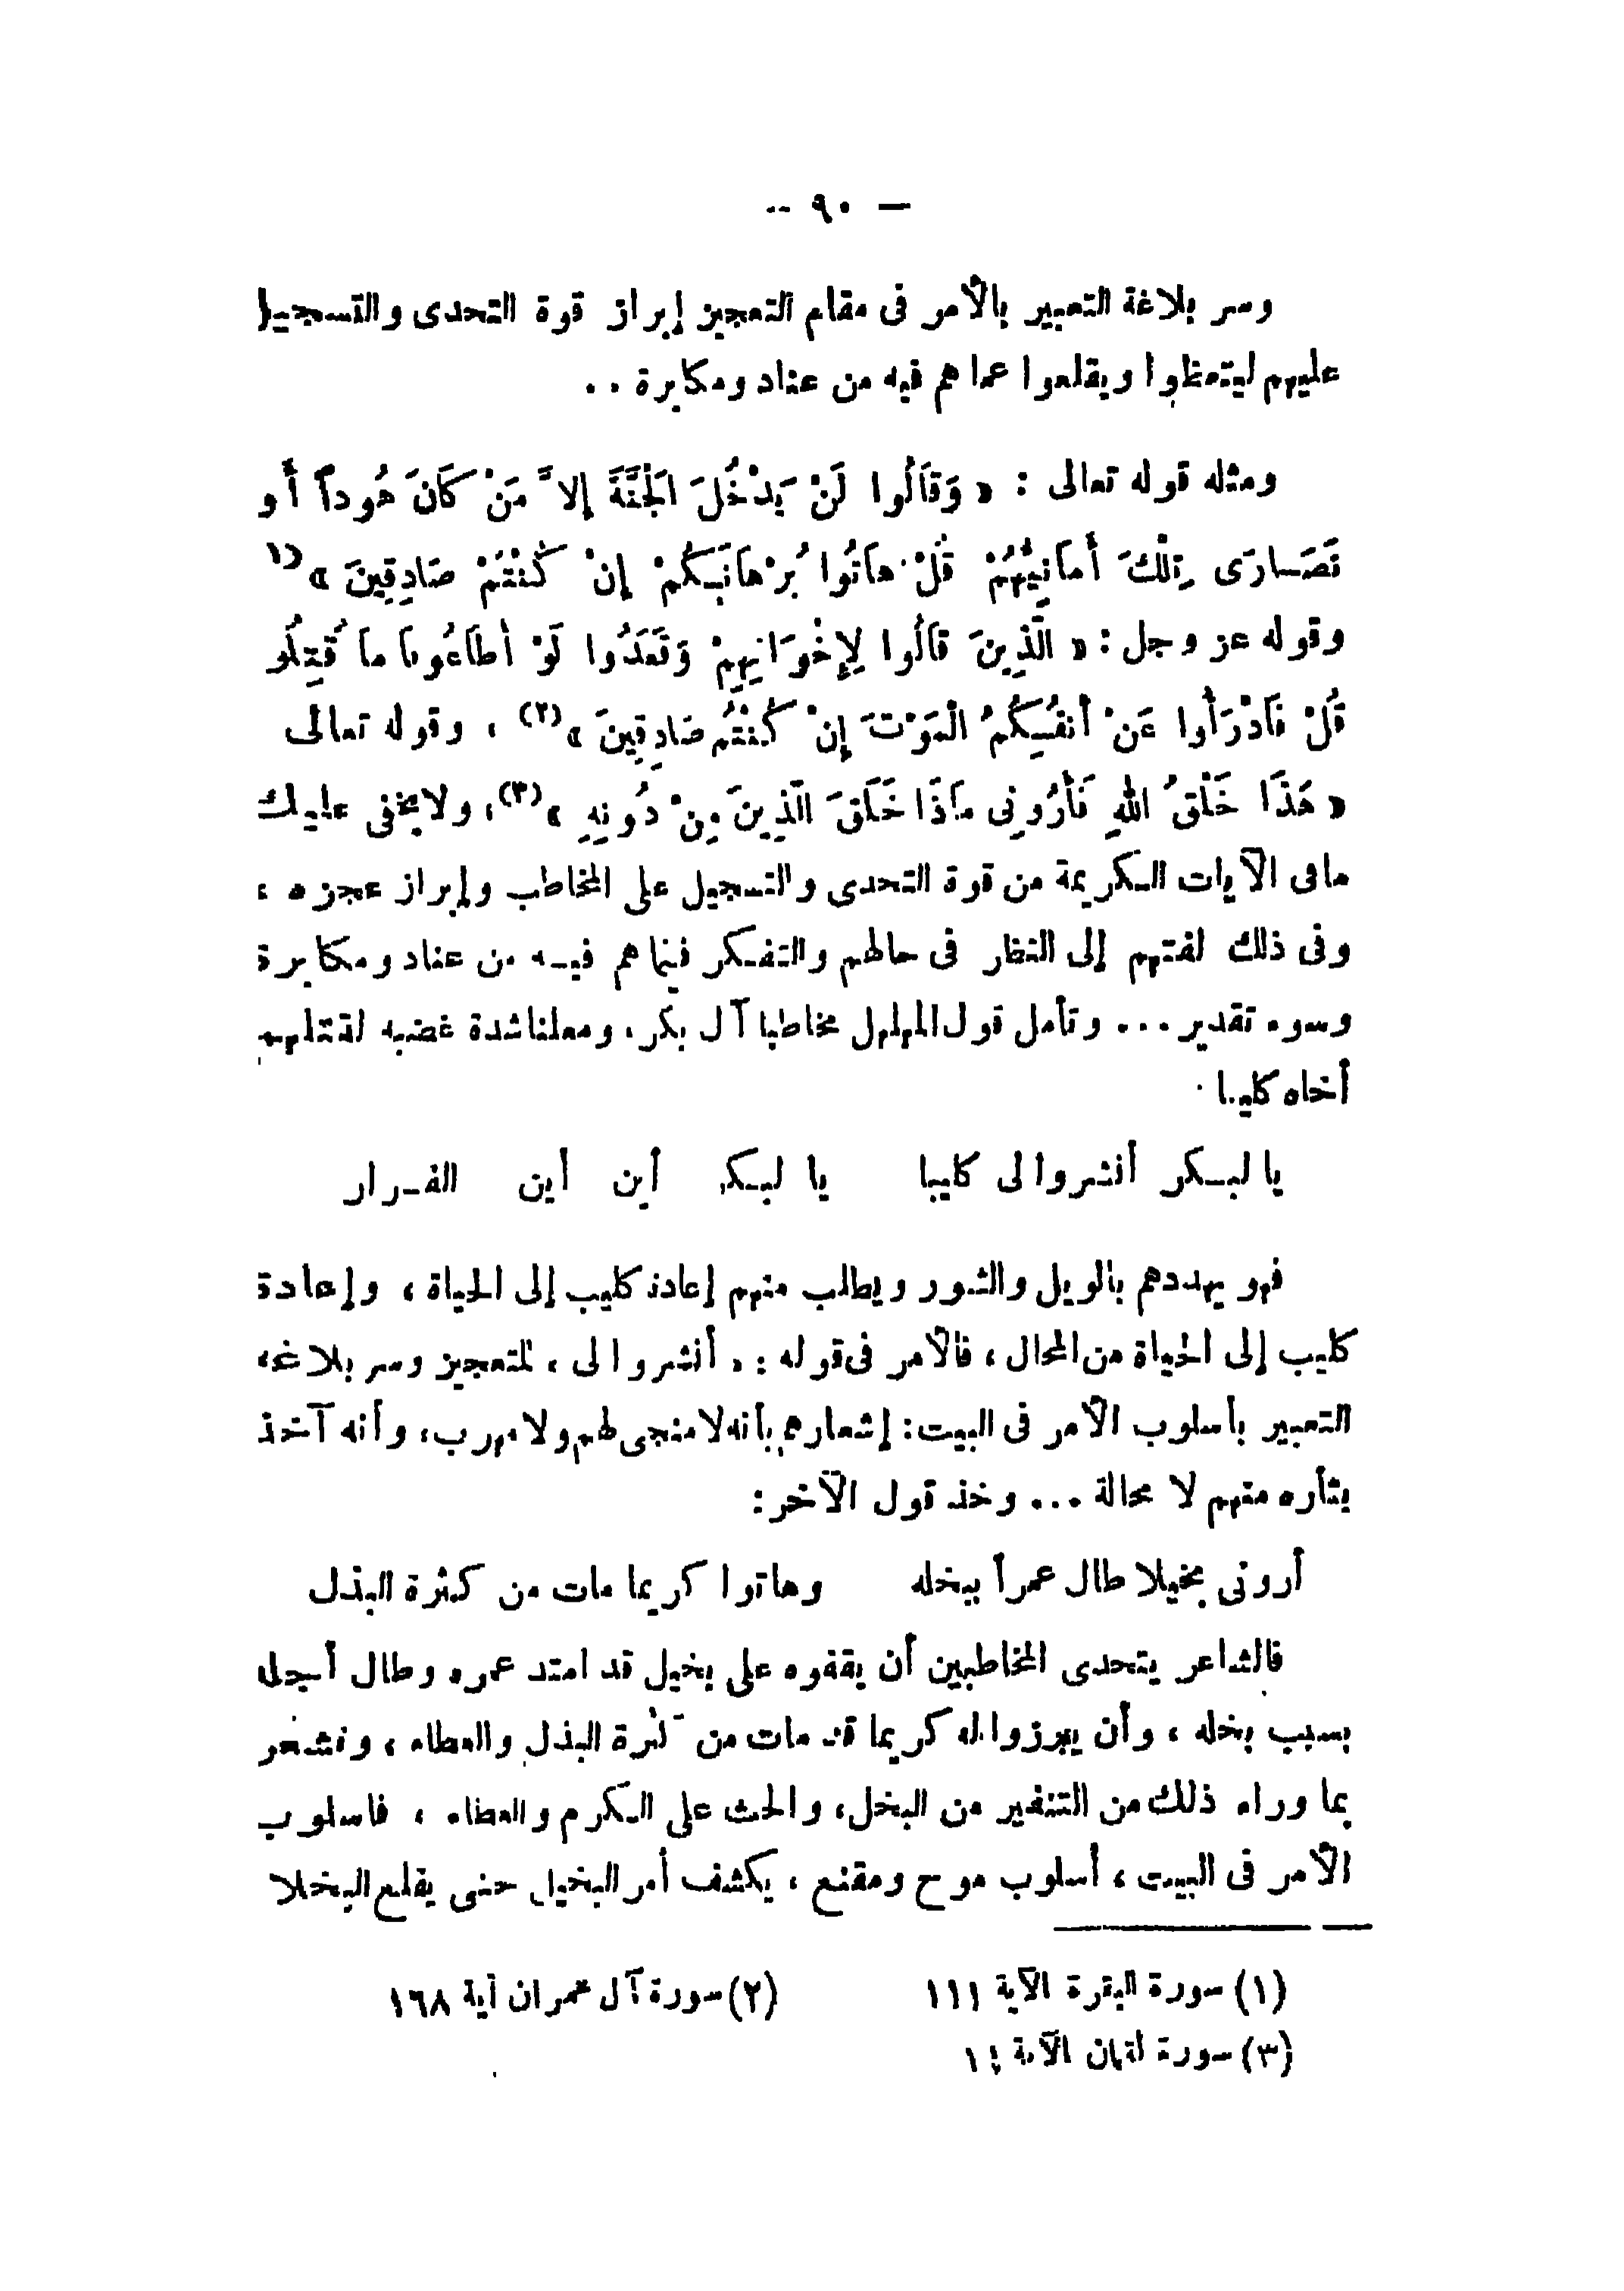 — ٩٠ --
وسر بلاغة التعبير بالأمر فى مقام التعجيز إبراز قوة التحدى والتسجيل
عليهم ليتعظوا ويقلعوا عما هم فيه من عناد ومكابرة ..
ومثله قوله تعالى : « وَقَالُوا لَنْ يَدْخُلَ الْجَنَّةَ إلاَّ مَنْ كَانَ هُوداً أَو
نَصَارَى تِلْكَ أَمَانِيُّهُمْ قُلْ هَاتُوا بُرْهَانَكُمْ إِنْ كُنْتُمْ صَادِقِينَ »(١
وقوله عز وجل : « الَّذِينَ قَالُوا لِإِخْوَانِهِمْ وَقَعَدُوا لَوْ أَطَاعُونَا مَا قُتِلُو
قُلْ فَادْرَأُوا عَنْ أَنفُسِكُمُ الْمَوْتَ إِنْ كُنْتُمْ صَادِقِينَ »(٢) ، وقوله تعالى
« هَذَا خَلْقُ اللهِ فَأَرُونِى مَاذَا خَلَقَ الَّذِينَ مِنْ دُونِهِ »(٣)، ولا يخفى عليك
ما فى الآيات الكريمة من قوة التحدى والتسجيل على المخاطب وإبراز عجزه ،
وفى ذلك لفتهم إلى النظر فى حالهم والتفكر فيما هم فيه من عناد ومكابرة
وسوء تقدير ... وتأمل قول المهلهل مخاطبا آل بكر، ومعلنا شدة غضبه لقتلهم
أخاه كليبا .
يا لبكر أنشروا لى كليبا يا لبكر أين أين الفرار
فهو يهددهم بالويل والثبور ويطلب منهم إعادة كليب إلى الحياة ، وإعادة
كليب إلى الحياة من المحال ، فالأمر فى قوله : « أنشروا لى ، للتعجيز وسر بلاغة
التعبير بأسلوب الأمر فى البيت : إشعارهم بأنه لا منجى لهم ولا مهرب، وأنه آخذ
بثأره منهم لا محالة ... وخذ قول الآخر :
أرونى بخيلا طال عمراً ببخله وهاتوا كريما مات من كثرة البذل
فالشاعر يتحدى المخاطبين أن يقفوه على بخيل قد امتد عمره وطال أجله
بسبب بخله ، وأن يبرزوا له كريما قد مات من كثرة البذل والعطاء ، ونشعر
بما وراء ذلك من التنفير من البخل، والحث على الكرم والعطاء ، فاسلوب
الأمر فى البيت ، أسلوب موح ومقنع ، يكشف أمر البخيل حتى يقلع البخلا
(١) سورة البقرة الآية ١١١
(٢) سورة آل عمران آية ١٦٨
(٣) سورة لقمان الآية ١١